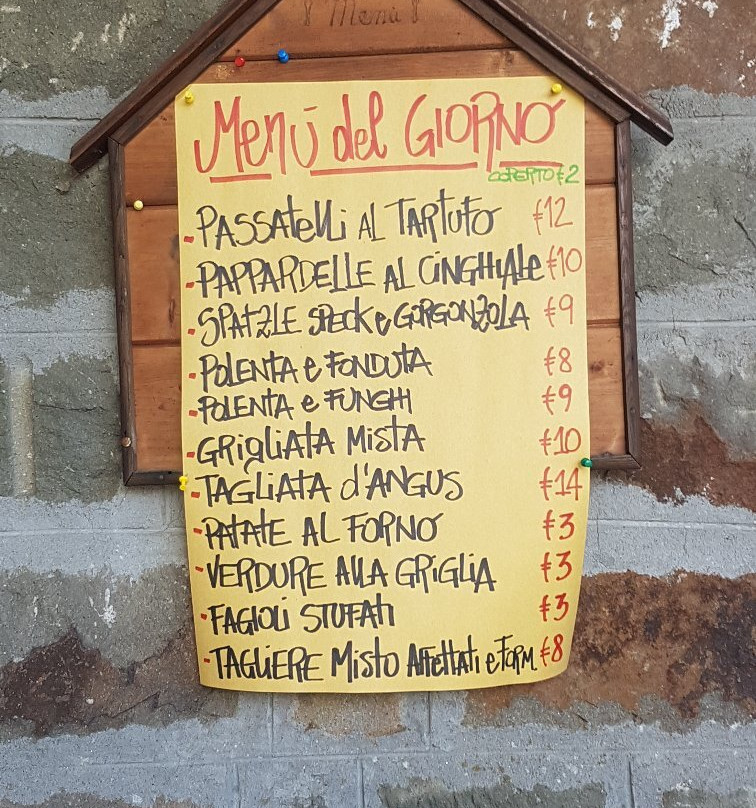 Menù
Menù del GIORNO
COPERTO €2
- PASSATELLI AL TARTUFO €12
- PAPPARDELLE AL CINGHIALE €10
- SPATZLE SPECK e GORGONZOLA €9
- POLENTA e FONDUTA €8
- POLENTA e FUNGHI €9
- GRIGLIATA MISTA €10
- TAGLIATA d'ANGUS €14
- PATATE AL FORNO €3
- VERDURE ALLA GRIGLIA €3
- FAGIOLI STUFATI €3
- TAGLIERE MISTO AFFETTATI e FORM €8